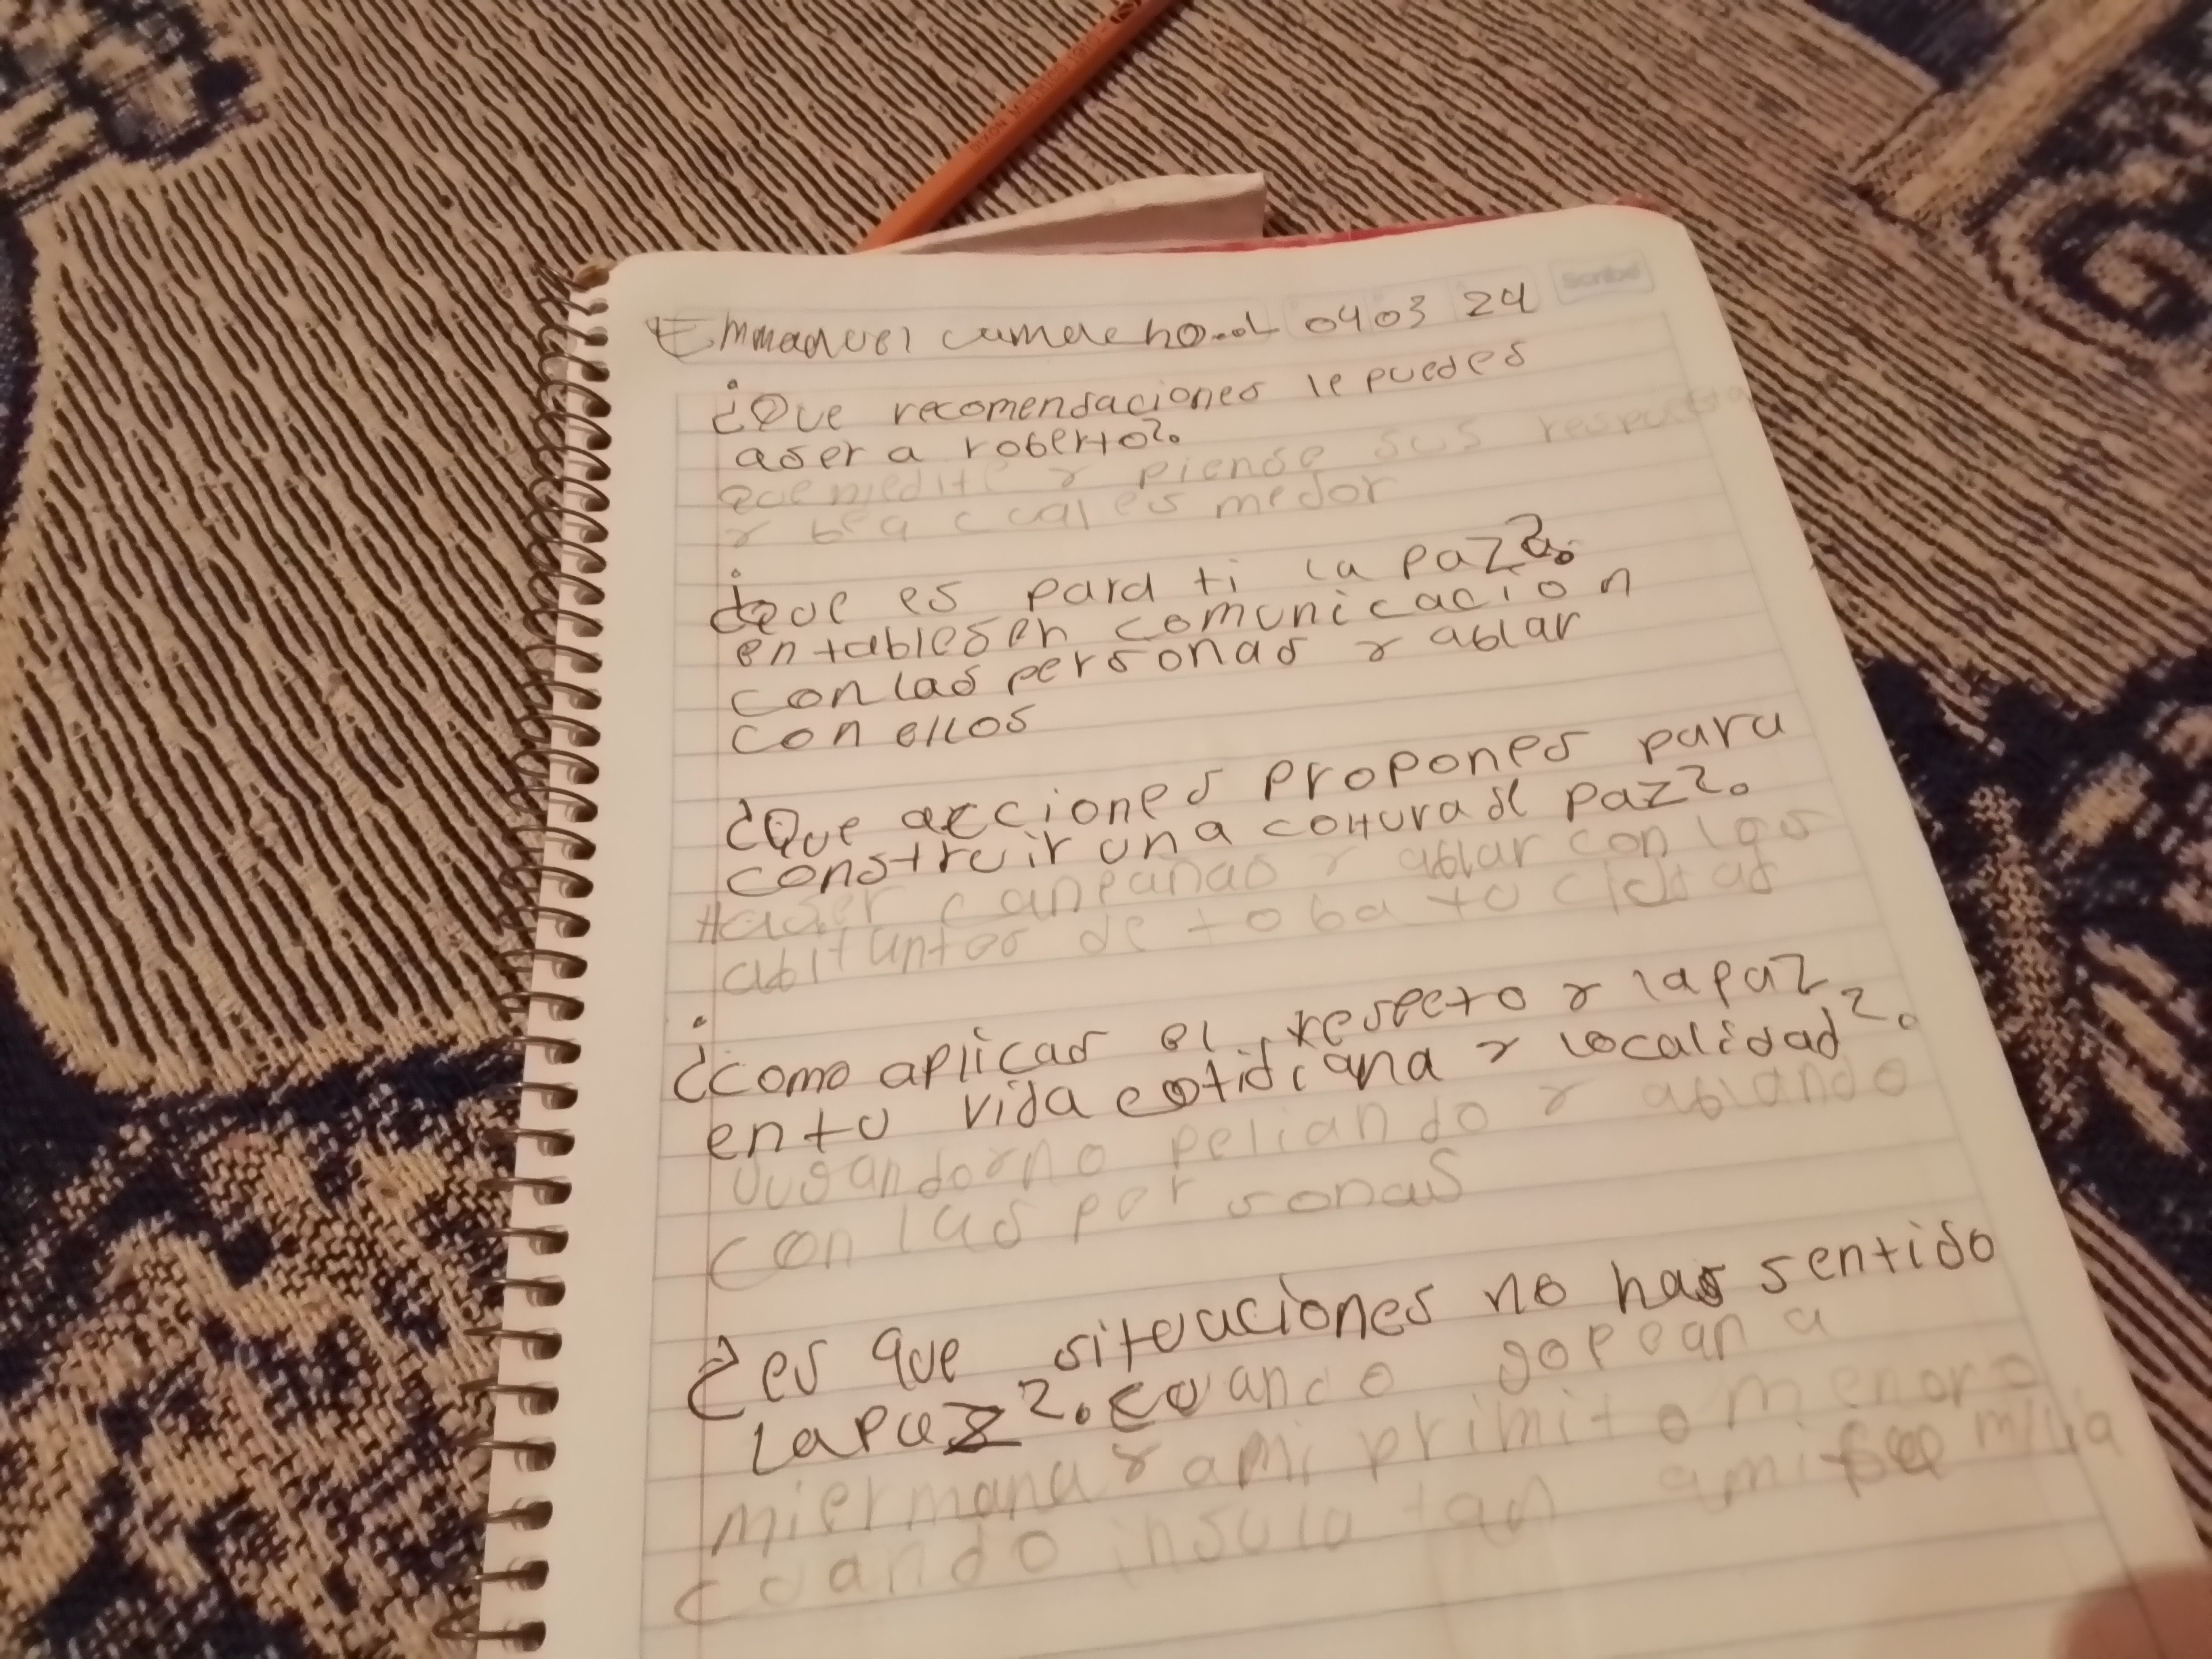 Emmanuel camacho 04 03 24
Scribe
¿Que recomendaciones le puedes
aser a roberto?
que medite y piense sus respuestas
y bea cual es medor
¿que es para ti la paz?
entableser comunicacion
con las personas y ablar
con ellos
¿Que acciones propones para
construir una coltura de paz?
Haser canpañas y ablar con las
abitantes de toba tu
¿como aplicas el respeto y la paz
en tu vida cotidiana y localidad?
Jugando y no peliando y ablando
con las personas
¿es que situaciones no has sentido
la paz? cuando gopean a
mi ermana y a mi primito menor o
cuando insula tan a mi familia
DIXON